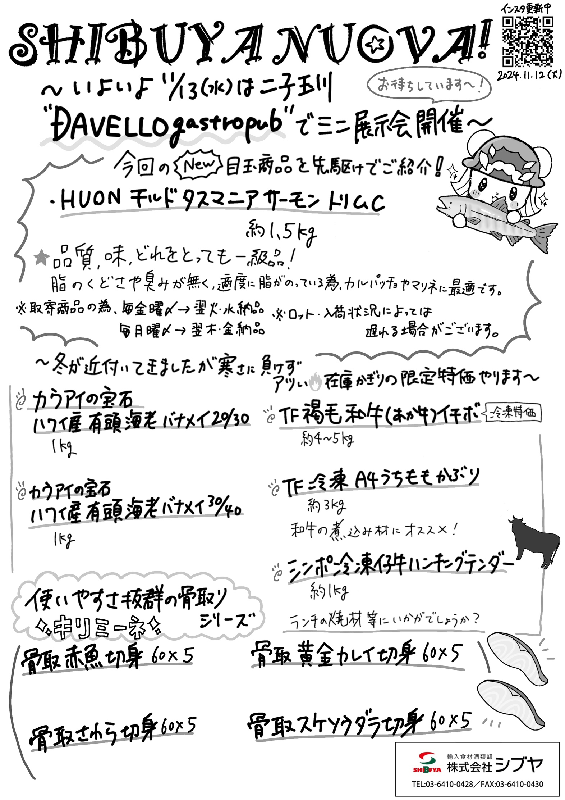 インスタ更新中
2024.11.12(火)
SHIBUYA NUOVA!
～いよいよ 11/13(水)は二子玉川
お待ちしています〜！
"DAVELLO gastropub"でミニ展示会開催～
今回の New 目玉商品を先駆けてご紹介！
・HUON チルド タスマニア サーモン トリムC
約1,5kg
★品質,味,どれをとっても一級品！
脂のくどさや臭みが無く,適度に脂がのっている為,カルパッチョやマリネに最適です。
※取寄商品の為、毎金曜〆→翌火・水納品
毎月曜〆→翌木・金納品
※ロット・入荷状況によっては
遅れる場合がございます。
～冬が近付いてきましたが寒さに負けず
アツい 在庫かぎりの限定特価やります～
カウアイの宝石
ハワイ産 有頭海老 バナメイ 20/30
1kg
カウアイの宝石
ハワイ産 有頭海老 バナメイ 30/40
1kg
TF 褐毛和牛(あか牛)イチボ
冷凍特価
約4～5kg
TF 冷凍 A4うちももかぶり
約3kg
和牛の煮込み材にオススメ！
シンポ 冷凍仔牛ハンギングテンダー
約1kg
ランチの焼材等にいかがでしょうか？
使いやすさ抜群の骨取り
キリミーネ シリーズ
骨取 赤魚切身 60×5
骨取 黄金カレイ切身 60×5
骨取 さわら切身 60×5
骨取 スケソウダラ切身 60×5
SHIBUYA
輸入食材酒類卸
株式会社 シブヤ
TEL:03-6410-0428／FAX:03-6410-0430